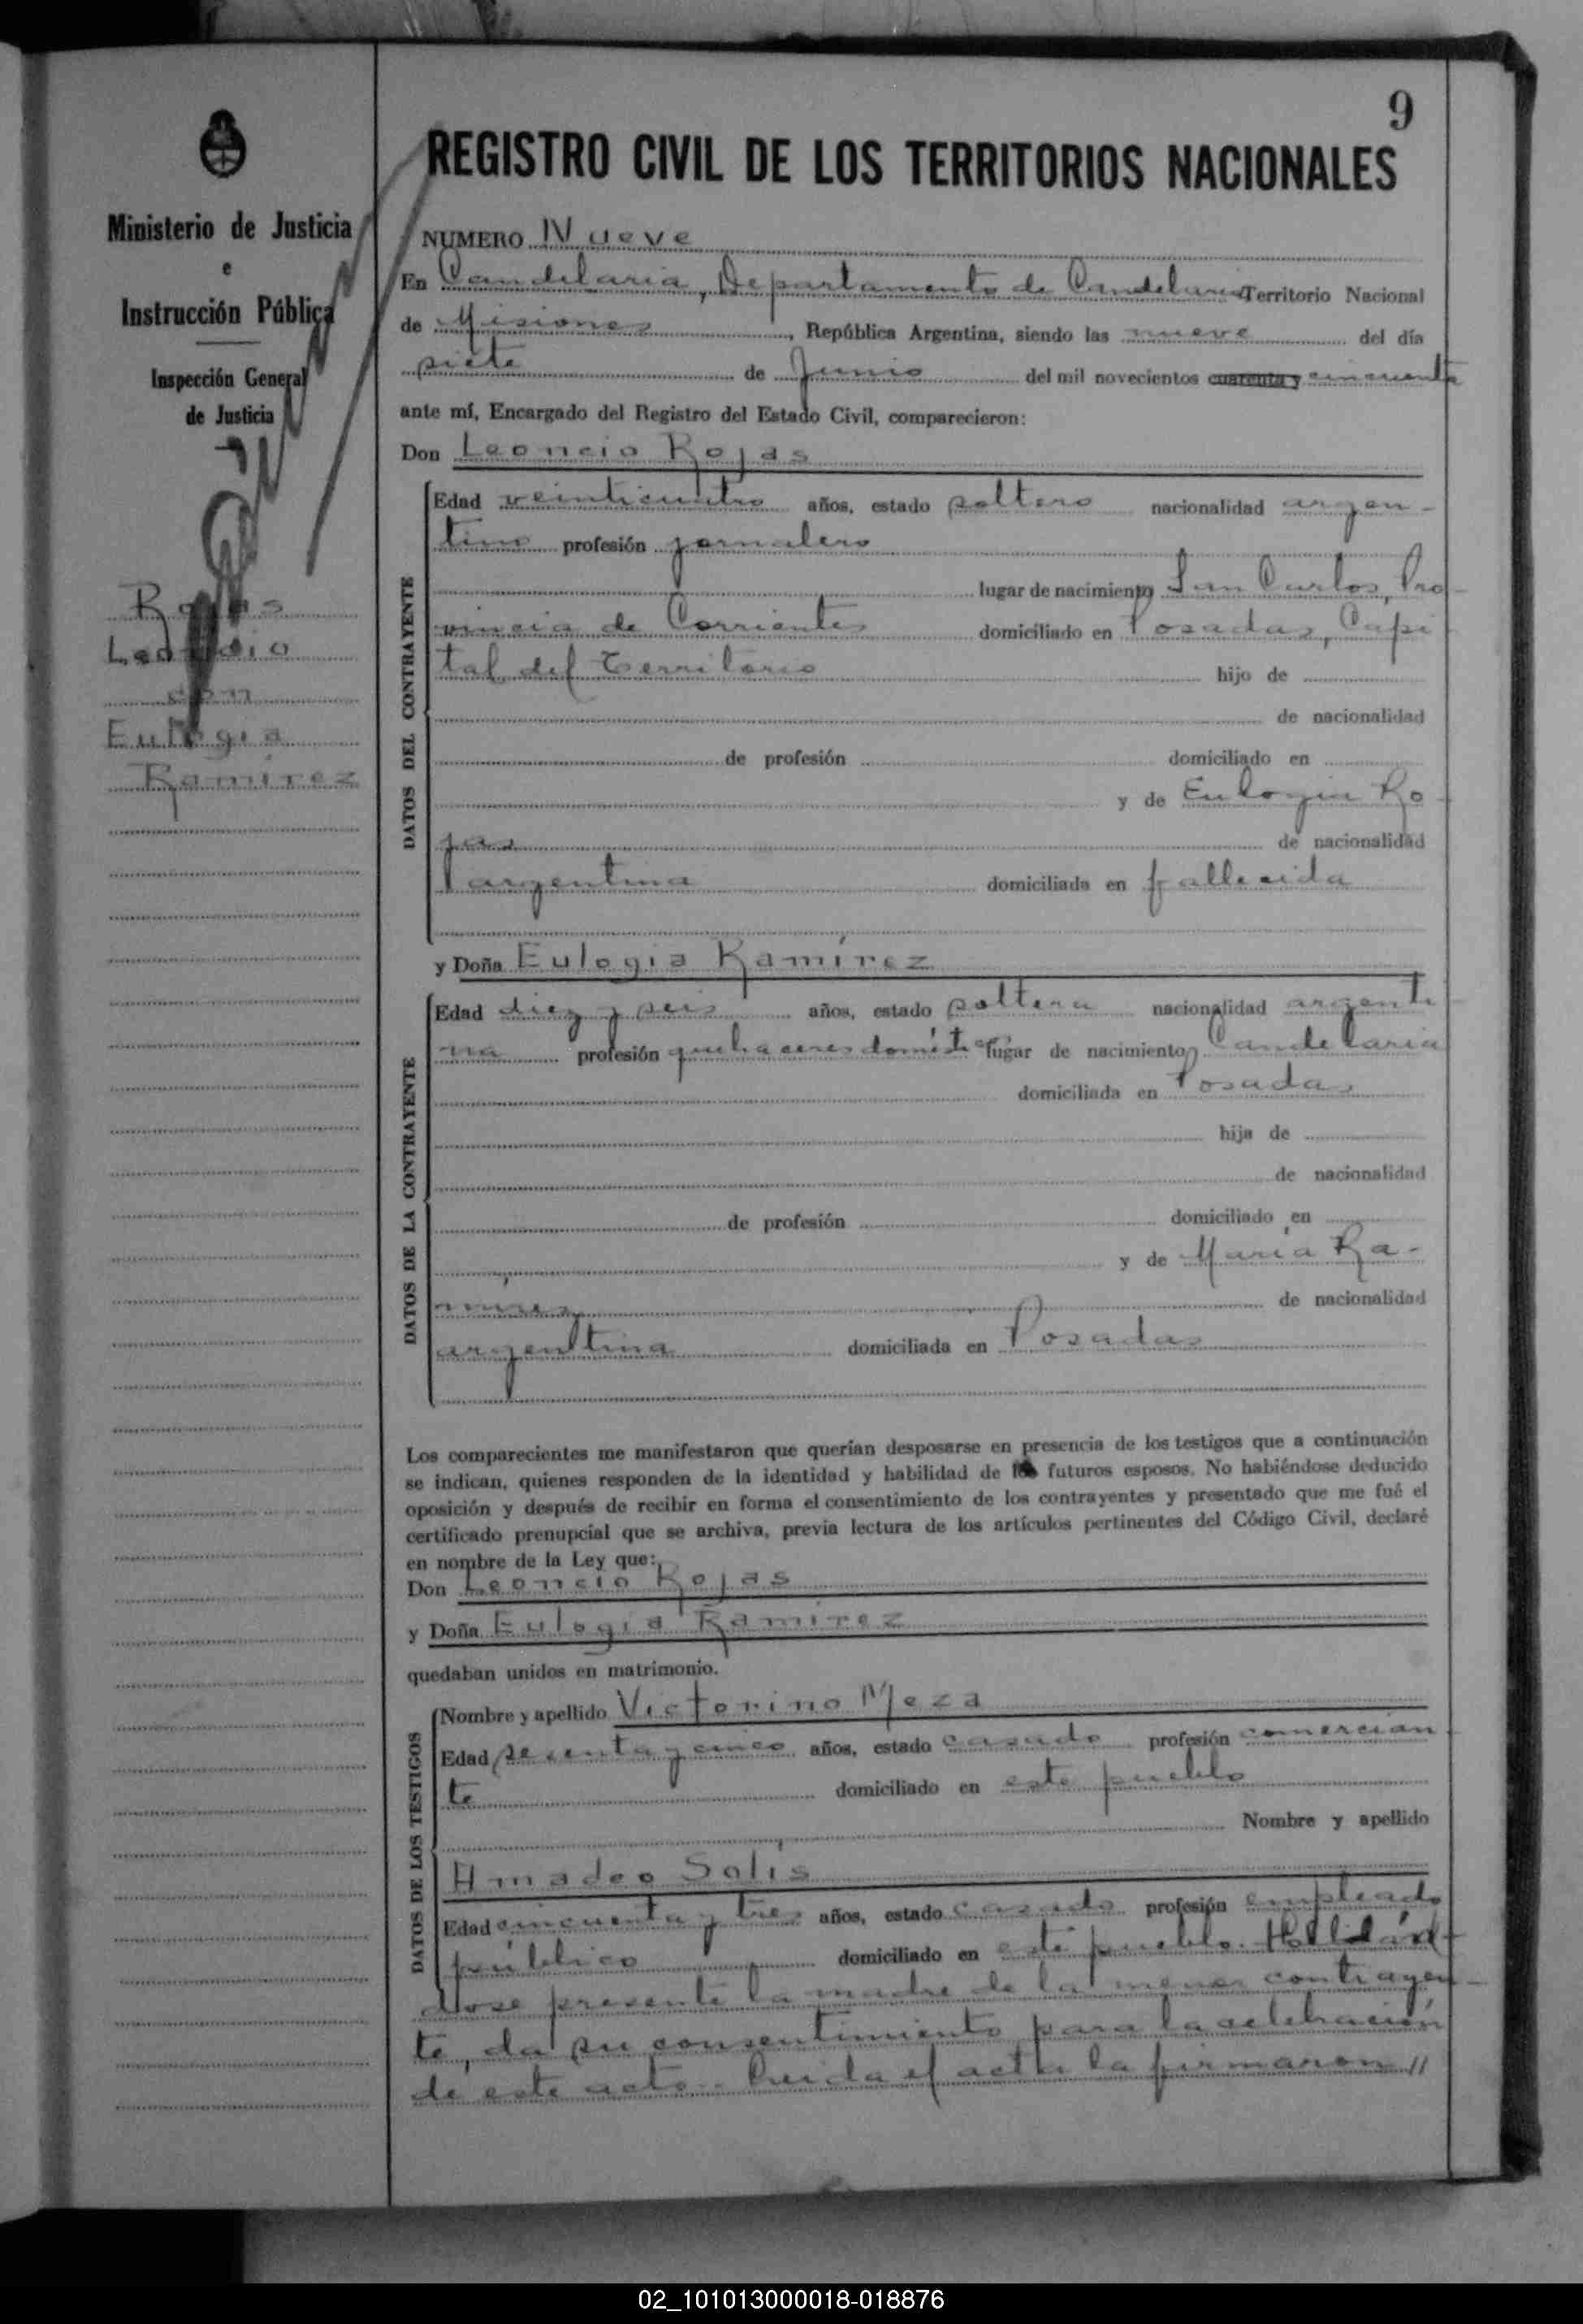 9
Ministerio de Justicia
e
Instrucción Pública
Inspección General
de Justicia
Rojas
Leoncio
con
Eulogia
Ramírez
REGISTRO CIVIL DE LOS TERRITORIOS NACIONALES
NUMERO Nueve
En Candelaria, Departamento de Candelaria Territorio Nacional
de Misiones, República Argentina, siendo las nueve del día
siete de Junio del mil novecientos cuarenta y cincuenta
ante mí, Encargado del Registro del Estado Civil, comparecieron:
Don Leoncio Rojas
DATOS DEL CONTRAYENTE
Edad veinticuatro años, estado soltero nacionalidad argen-
tino profesión jornalero
lugar de nacimiento San Carlos, Pro-
vincia de Corrientes domiciliado en Posadas, Capi
tal del Territorio hijo de
de nacionalidad
de profesión domiciliado en
y de Eulogia Ro-
jas de nacionalidad
argentina domiciliada en fallecida
y Doña Eulogia Ramírez
DATOS DE LA CONTRAYENTE
Edad diez y seis años, estado soltera nacionalidad argenti
na profesión quehaceres domést. lugar de nacimiento Candelaria
domiciliada en Posadas
hija de
de nacionalidad
de profesión domiciliado en
y de María Ra-
mírez de nacionalidad
argentina domiciliada en Posadas
Los comparecientes me manifestaron que querían desposarse en presencia de los testigos que a continuación
se indican, quienes responden de la identidad y habilidad de los futuros esposos. No habiéndose deducido
oposición y después de recibir en forma el consentimiento de los contrayentes y presentado que me fué el
certificado prenupcial que se archiva, previa lectura de los artículos pertinentes del Código Civil, declaré
en nombre de la Ley que:
Don Leoncio Rojas
y Doña Eulogia Ramírez
quedaban unidos en matrimonio.
DATOS DE LOS TESTIGOS
Nombre y apellido Victorino Meza
Edad sesenta y cinco años, estado casado profesión comercian
te domiciliado en este pueblo
Nombre y apellido
Amadeo Solís
Edad cincuenta y tres años, estado casado profesión empleado
público domiciliado en este pueblo. Hallán-
dose presente la madre de la menor contrayen-
te, da su consentimiento para la celebración
de este acto.- Leida el acta la firmaron //
02_101013000018-018876